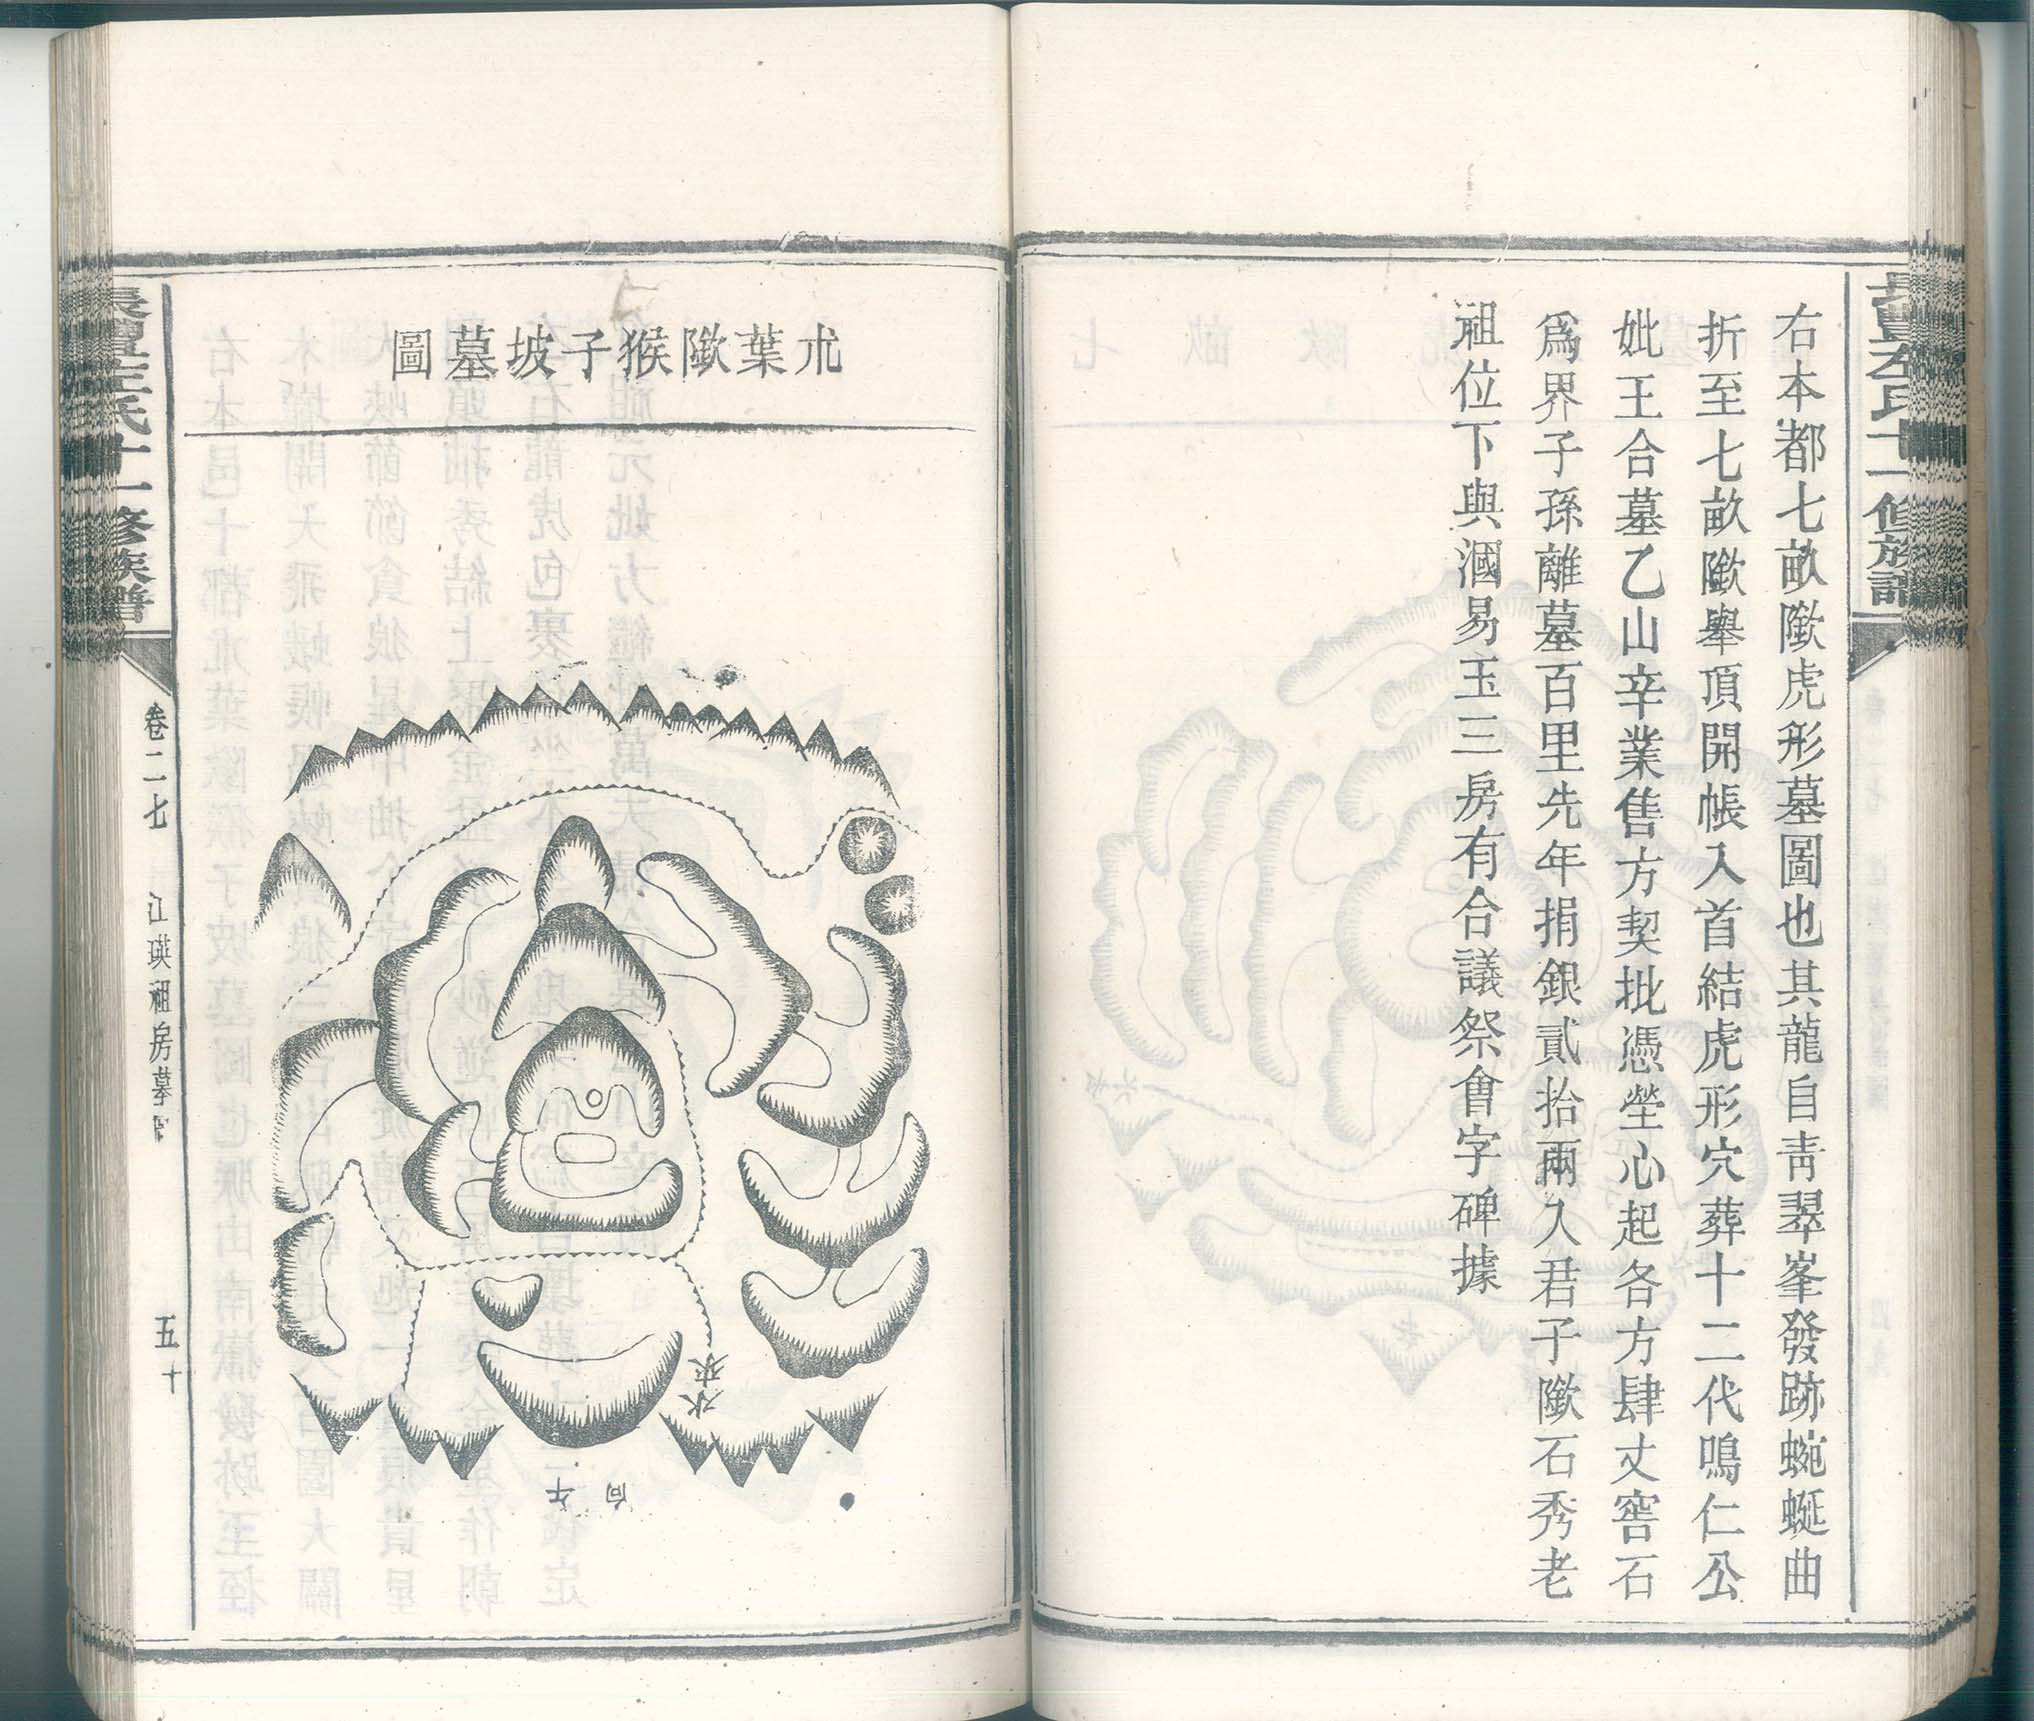 右本都七畝㘓虎形墓圖也其龍自靑翠峯發跡蜿蜒曲
折至七畝㘓舉頂開帳入首結虎形穴葬十二代鳴仁公
妣王合墓乙山辛業售方契批憑塋心起各方肆丈窖石
爲界子孫離墓百里先年捐銀貳拾兩入君子㘓石秀老
祖位下與漍易玉三房有合議祭會字碑據
朮葉㘓猴子坡墓圖
來水
向午
十一修族譜
卷二七
江瑛祖房墓
五十